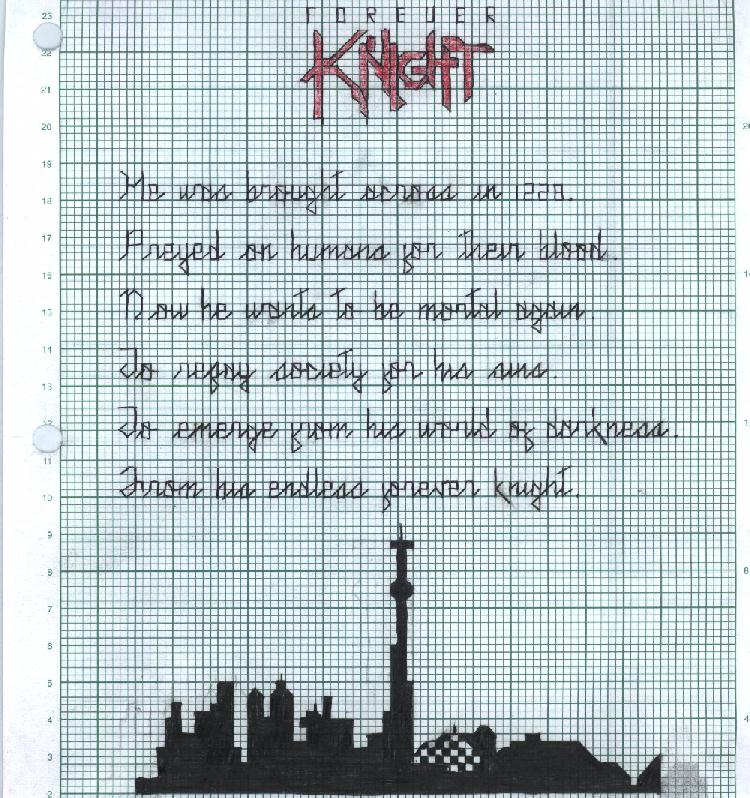 FOREVER
KNIGHT
He was brought across in 1228.
Preyed on humans for their blood.
Now he wants to be mortal again.
To repay society for his sins.
To emerge from his world of darkness.
From his endless forever knight.
23
22
21
20
19
18
17
16
15
14
13
12
11
10
9
8
7
6
5
4
3
2
8
4